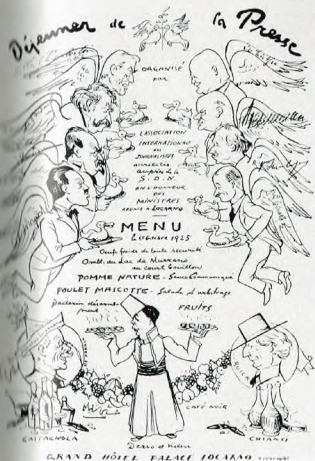 Déjeuner de la Presse
ORGANISÉ
PAR
L'ASSOCIATION
INTERNATIONALE
DES
JOURNALISTES
accrédités
auprès de la
S.D.N
EN L'HONNEUR
DES
MINISTRES
RÉUNIS A LOCARNO
MENU
1925
Oeufs froids de toute sécurité
Omble du Lac de Murano
au court bouillon
POMME NATURE - Sauce Communiqué
POULET MASCOTTE - Salade d'arbitrage
FRUITS
CAFÉ NOIR
CASTAGNOLA
CHIANTI
Derso et Kelen
GRAND HÔTEL PALACE LOCARNO